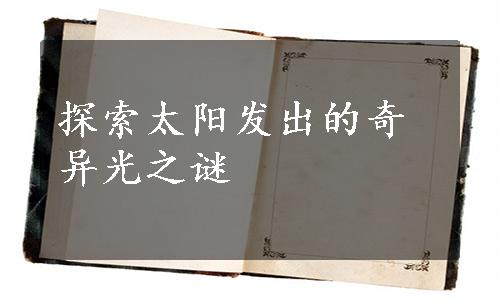 探索太阳发出的奇
异光之谜